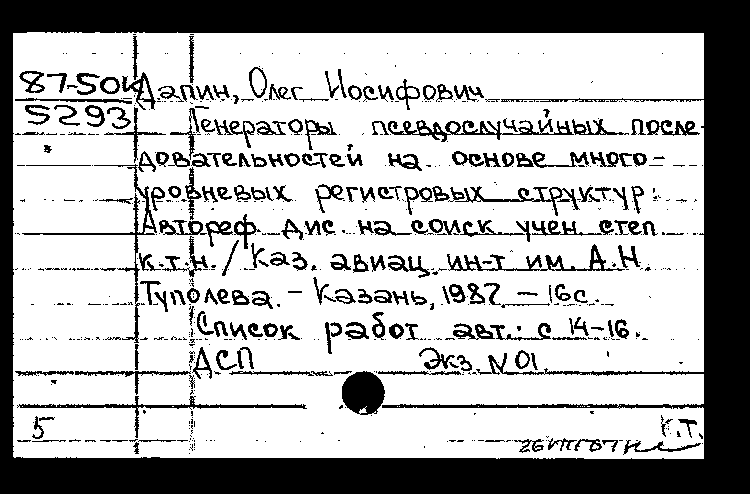 87-50к Дапин, Олег Иосифович
5293 Генераторы псевдослучайных после-
довательностей на основе много-
уровневых регистровых структур:
Автореф. дис. на соиск. учен. степ.
к.т.н. / Каз. авиац. ин-т им. А.Н.
Туполева. - Казань, 1987. - 16с.
Список работ авт.: с 14-16.
ДСП Экз. N 01.
5 К.Т.